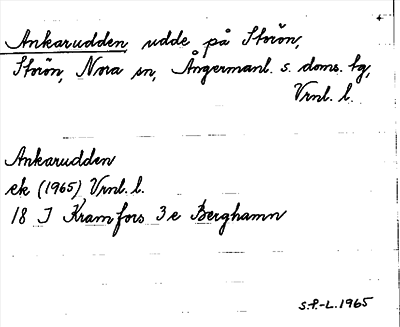 Ankarudden udde på Storön,
Storön, Nora sn, Ångermanl. s. doms. tg,
Vrnl. l.
Ankarudden
ek (1965) Vrnl. l.
18 J Kramfors 3 e Berghamn
S.P.-L. 1965